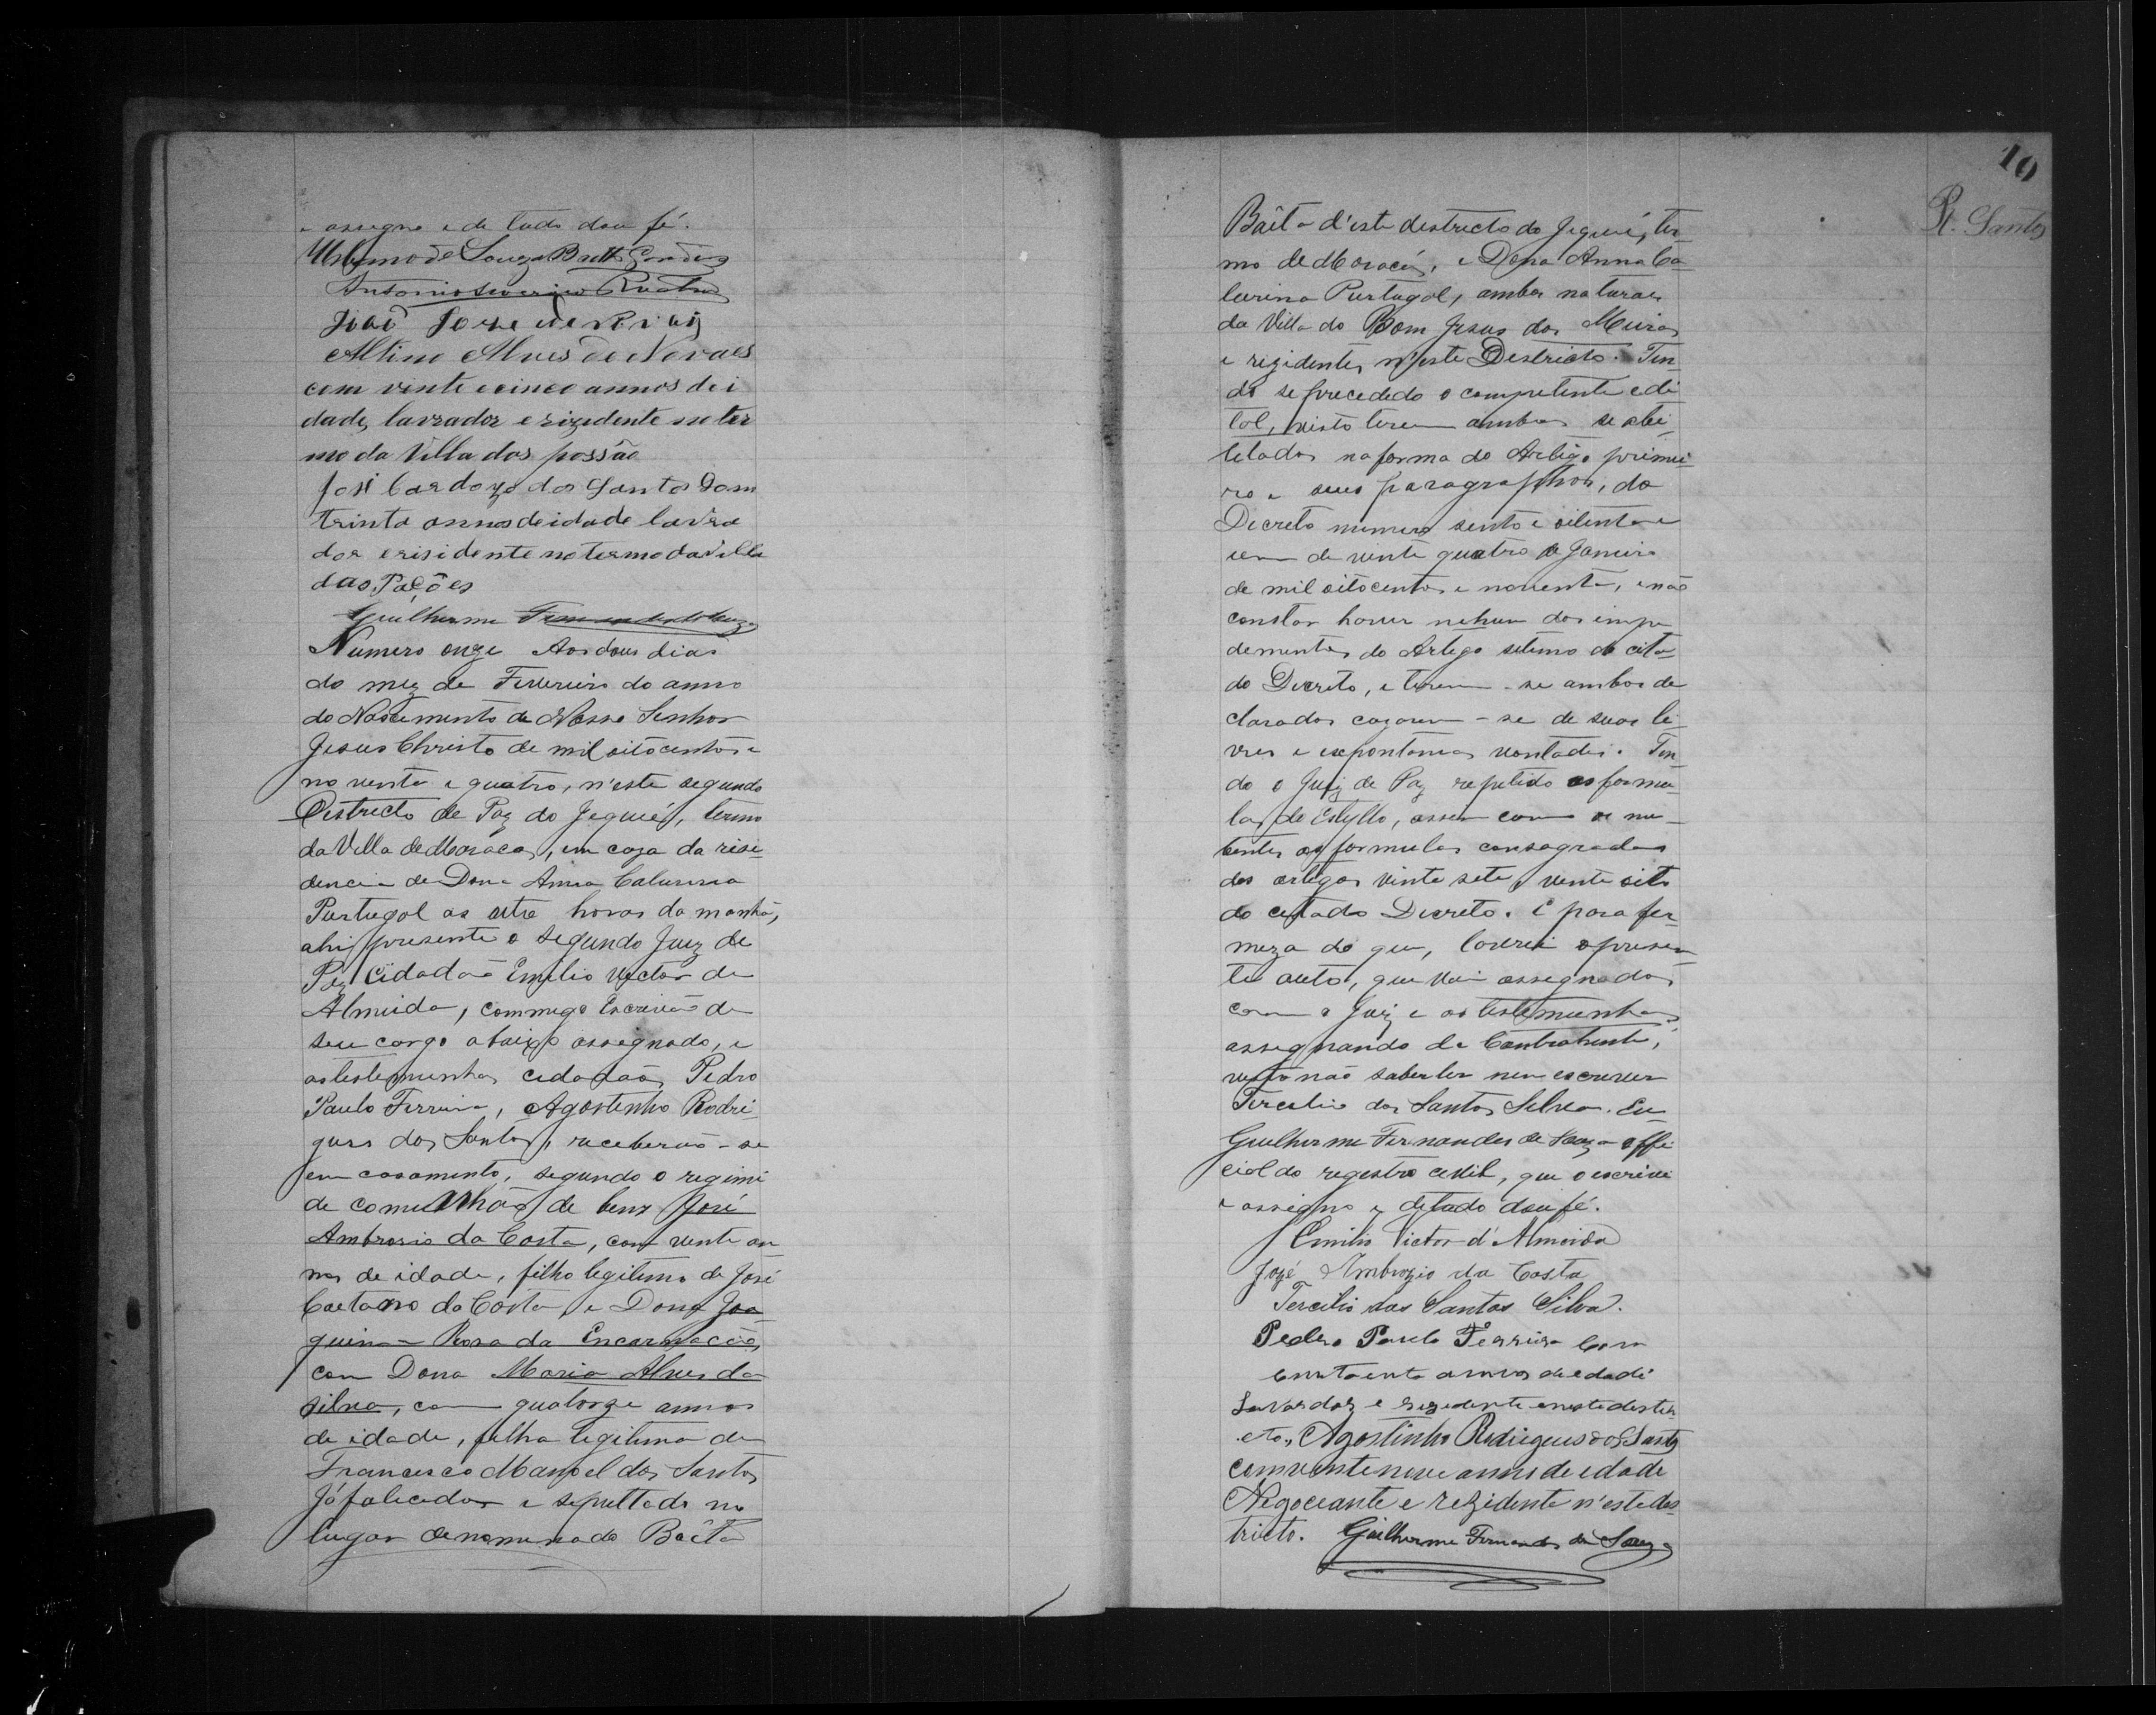 e assegno e de tudo dou fé.
Urbano de Souza Britto Gondim
Antonio Severino
João Jose de
Altino Alves de Novaes
com vente e cinco annos de i
dade, lavrador e rizidente no ter
mo da Villa das possão
José Cardozo dos Santos Com
trinta annos de idade lavra
dor e risidente no termo da Villa
das Poções
Guilherme Fernandes de Souza
Numero onze Aos dous dias
do mez de Fevereiro do anno
do Nascemento de Nosso Senhor
Jesus Christo de mil oitocentos e
noventa e quatro, n'este segundo
Destricto de Paz do Jequié, termo
da Villa de Maracás, em caza da resi-
dencia de Dona Anna Calurina
Purtugal as horas da manhã,
ahi presente o segundo Juiz de
Paz Cidadão Emilio Victor de
Almeida, commego Escrivão de
seu cargo abaixo assegnado, e
as testemunhas cedadãos Pedro
Paulo Ferreira, Agostinho Rodri
gues dos Santos, receberão-se
em casamento, segundo o regimi
de comunhão de bens José
Ambrosio da Costa, com vente an
nos de idade, filho legitimo de José
Caetano da Costa e Dona Joa
quina Rosa da Encarnação,
com Dona Maria Alves da
Silva, com quatorze annos
de idade, filha legitima de
Francisco Manoel dos Santos
já falecedo e sepultado no
lugar denominado Baêta
10
R. Santos
Baêta d'este destricto do Jequié, ter
mo de Maracás, e Dona Anna Ca
lurina Purtugal, ambos naturaes
da Villa do Bom Jesus dos Meiras
e rezidentes n'este Destricto. Ten-
do se precedido o competente edi
tal, visto terem ambos se abi-
letados na forma do Artigo primei
ro e seus paragraphos, do
Decreto numero sento e oitenta e
um de vente quatro de Janeiro
de mil oitocentos e noventa, e não
constar haver nehum dos impe
dementos do Artego setimo do cita-
do Decreto, e terem-se ambos de
clarados cazarem-se de suas li
vres e expontanias vontades. Ten
do o Juiz de Paz repetido as formu-
las do Estyllo, assim como os nu-
bentes as formulas consagradas
dos artegos vinte sete, vente oito
do cetado Decreto. E para fer-
meza do que, lavrei o presen-
te auto, que vai assegnado,
com o Juiz e as testemunhas,
assegnando da Contrahente,
visto não saber ler nem escrever
Tercilio dos Santos Silva. Eu
Guilherme Fernandes de Souza offi
cial do registro cevil, que o escrivi
e assigno e de tudo dou fé.
Emilio Victor d'Almeida
Jozé Ambrozio da Costa
Tercilio dos Santos Silva.
Pedro Paulo Ferreira Com
annos de edade
Lavardor e rezedente neste destri
cto, Agostinho Rodrigues dos Santos
com vente nove annos de edade
Negociante e rezidente n'este des
tricto. Guilherme Fernandes de Souza